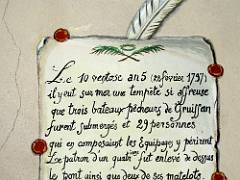 Le 10 ventose an 5 (28 février 1797)
il y eut sur mer une tempête si affreuse
que trois bateaux pêcheurs de Gruissan
furent submergés et 29 personnes
qui en composaient les Equipages y périrent
Le patron d'un quatrième fut enlevé de dessus
le pont ainsi que deux de ses matelots.